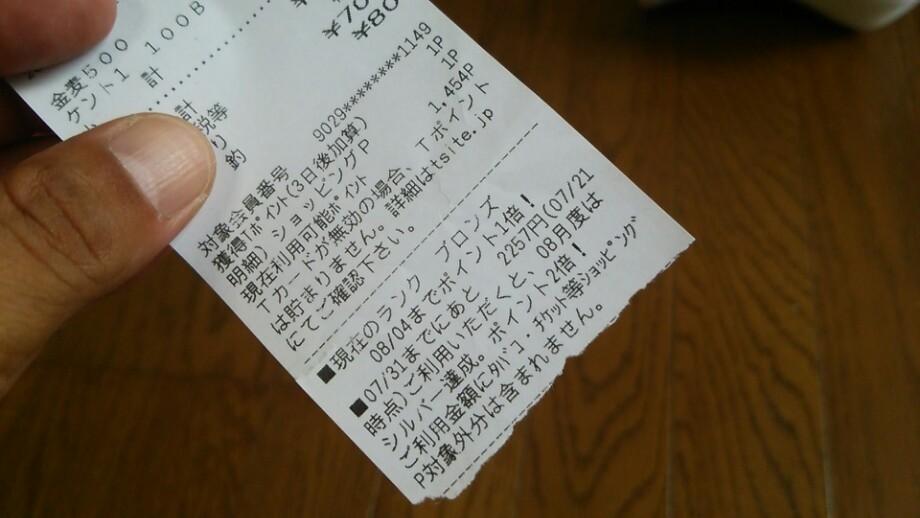 金麦500
ケント1 100B
¥70
計 ¥80
計
税等
り
釣
対象会員番号 9029********1149
獲得Tポイント(3日後加算) 1P
明細)ショッピングP 1P
現在利用可能ポイント 1,454P
Tカードが無効の場合、Tポイント
は貯まりません。詳細はtsite.jp
にてご確認下さい。
■現在のランク ブロンズ
08/04までポイント1倍!
■07/31までにあと 2257円(07/21
時点)ご利用いただくと、08月度は
シルバー達成。ポイント2倍!
ご利用金額にタバコ・チケット等ショッピング
P対象外分は含まれません。